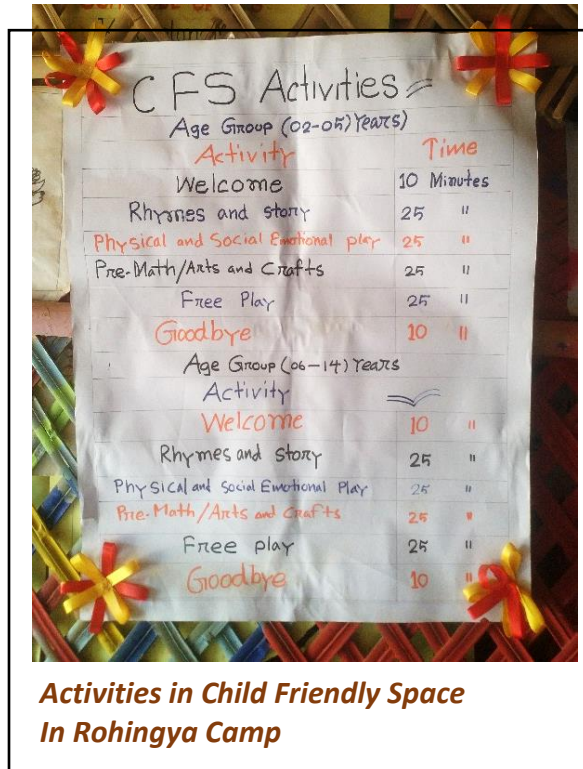 CFS Activities
Age Group (02-05) Years)
Activity Time
Welcome 10 Minutes
Rhymes and story 25 "
Physical and Social Emotional play 25 "
Pre-Math/Arts and Crafts 25 "
Free Play 25 "
Goodbye 10 "
Age Group (06-14) Years
Activity
Welcome 10 "
Rhymes and story 25 "
Physical and Social Emotional Play 25 "
Pre-Math/Arts and Crafts 25 "
Free play 25 "
Goodbye 10 "
Activities in Child Friendly Space
In Rohingya Camp